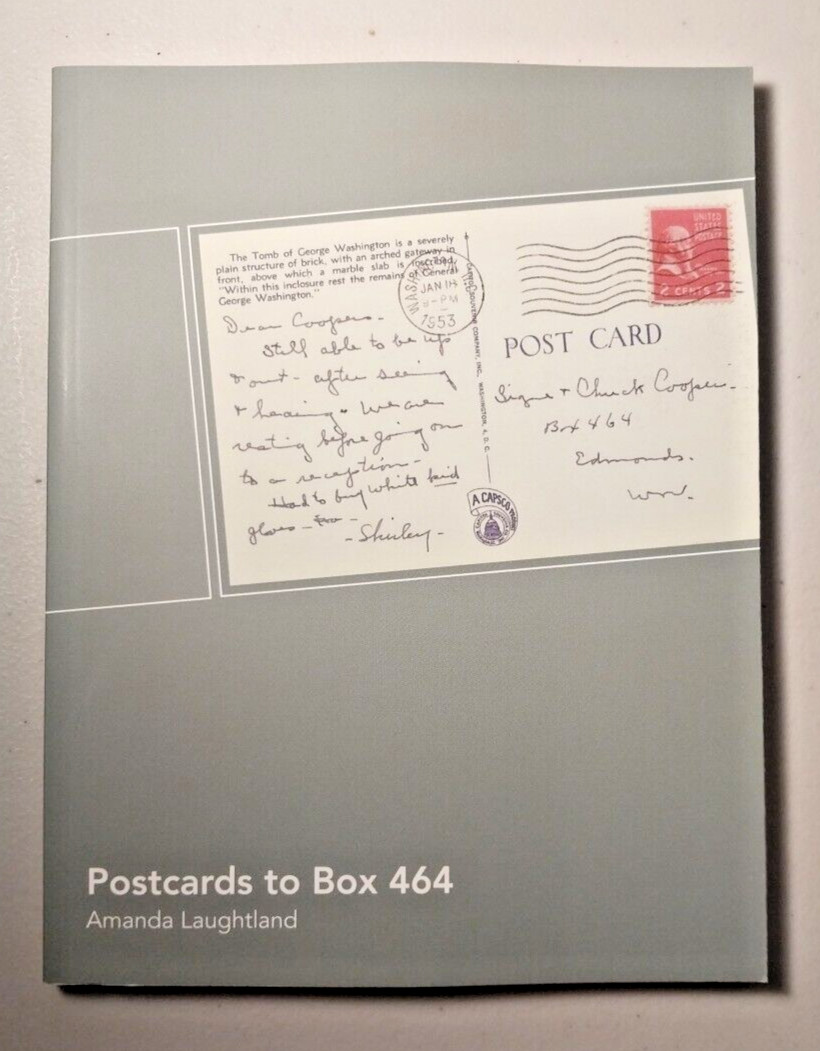 The Tomb of George Washington is a severely
plain structure of brick, with an arched gateway in
front, above which a marble slab is inscribed,
"Within this inclosure rest the remains of General
George Washington."
Dear Coopers-
Still able to be up
& out- after seeing
& hearing. We are
resting before going on
to a reception-
Had to buy white kid
gloves-
-Shirley-
WASH
JAN 18
-PM
1953
CAPITOL SOUVENIR COMPANY, INC., WASHINGTON, D. C.
A CAPSCO
UNITED
STATES
POSTAGE
2 CENTS 2
POST CARD
Signe & Chuck Cooper-
Box 464
Edmonds.
Wn.
Postcards to Box 464
Amanda Laughtland